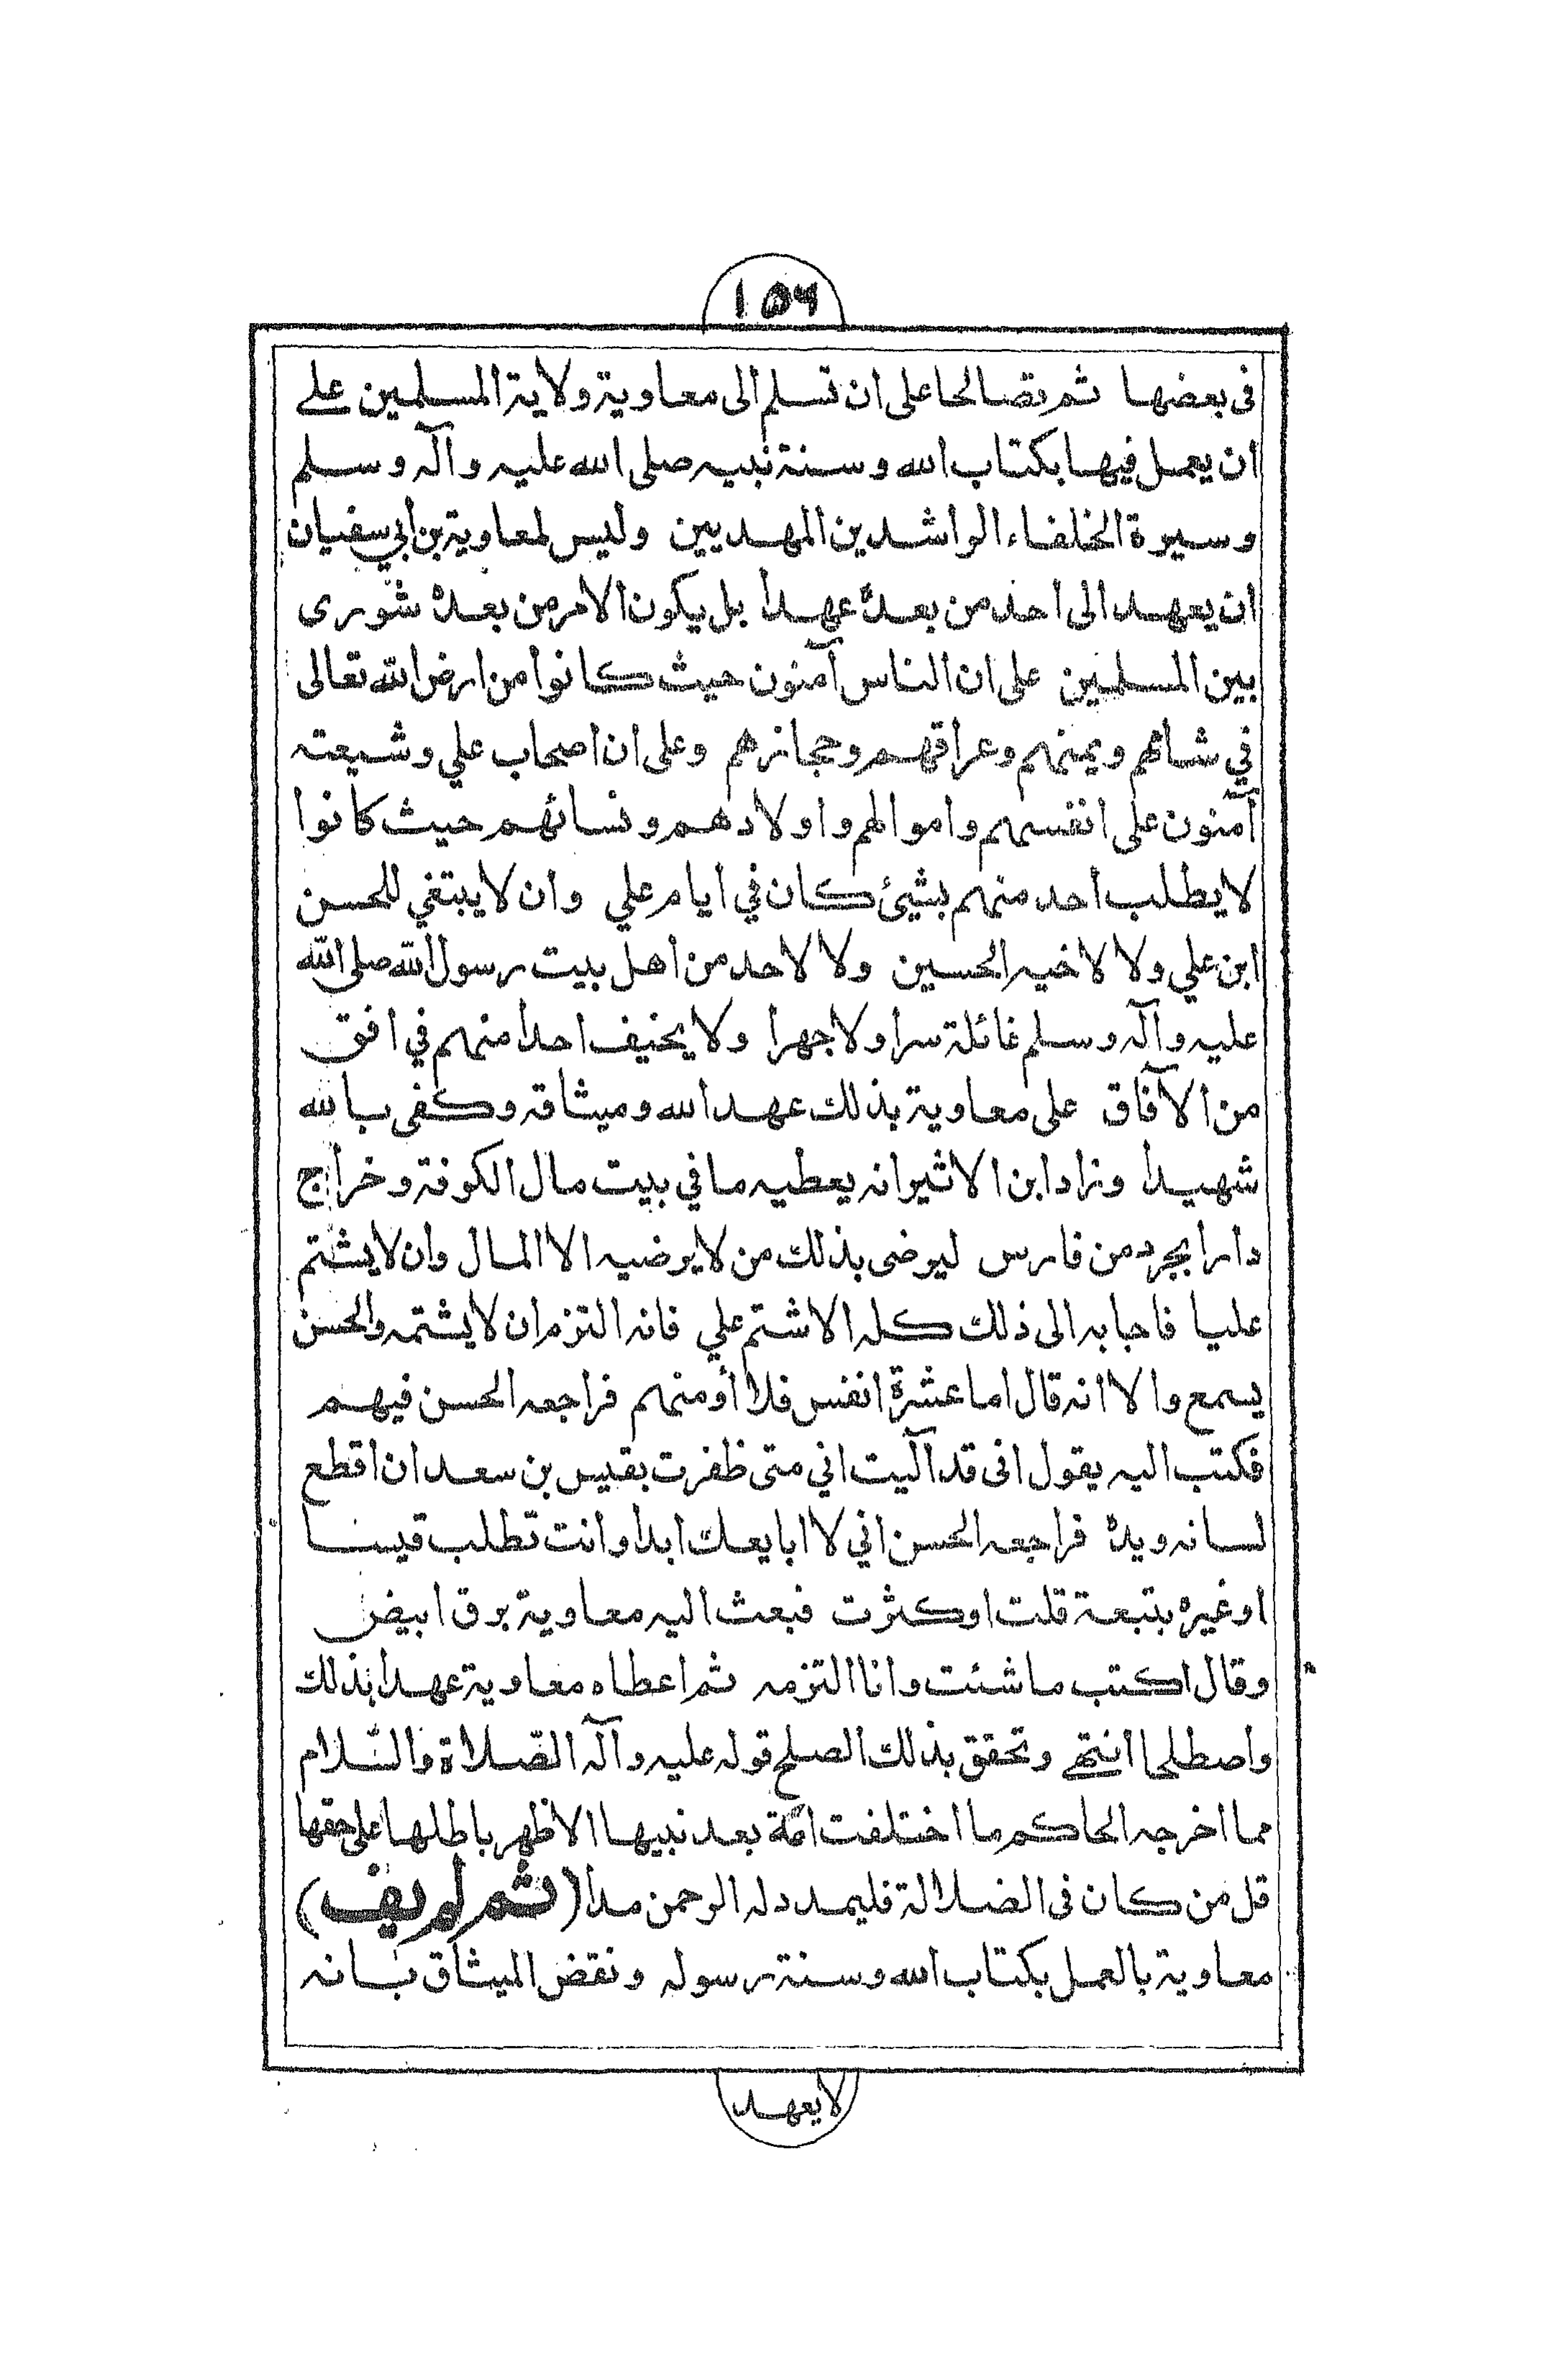 ١٥٦
فى بعضها ثم تصالحا على ان تسلم الى معاوية ولاية المسلمين على
ان يعمل فيها بكتاب الله وسنة نبيه صلى الله عليه وآله وسلم
وسيرة الخلفاء الراشدين المهديين وليس لمعاوية بن ابي سفيان
ان يعهد الى احد من بعده عهدا بل يكون الامر من بعده شورى
بين المسلمين على ان الناس آمنون حيث كانوا من ارض الله تعالى
في شامهم ويمنهم وعراقهم وحجازهم وعلى ان اصحاب علي وشيعته
آمنون على انفسهم واموالهم واولادهم ونسائهم حيث كانوا
لا يطلب احد منهم بشيئ كان في ايام علي وان لا يبتغي للحسن
ابن علي ولا لاخيه الحسين ولا لاحد من اهل بيت رسول الله صلى الله
عليه وآله وسلم غائلة سرا ولا جهرا ولا يخيف احدا منهم في افق
من الآفاق على معاوية بذلك عهد الله وميثاقه وكفى بالله
شهيدا وزاد ابن الاثير انه يعطيه ما في بيت مال الكوفة وخراج
دارابجرد من فارس ليرضى بذلك من لا يرضيه الا المال وان لا يشتم
عليا فاجابه الى ذلك كله الا شتم علي فانه التزم ان لا يشتمه والحسن
يسمع والا انه قال اما عشرة انفس فلا أومنهم فراجعه الحسن فيهم
فكتب اليه يقول انى قد آليت اني متى ظفرت بقيس بن سعد ان اقطع
لسانه ويده فراجعه الحسن اني لا ابايعك ابدا وانت تطلب قيسا
او غيره بتبعة قلت او كثرت فبعث اليه معاوية برق ابيض
وقال اكتب ما شئت وانا التزمه ثم اعطاه معاوية عهدا بذلك
واصطلحا انتهى وتحقق بذلك الصلح قوله عليه وآله الصّلاة والسّلام
مما اخرجه الحاكم ما اختلفت امّة بعد نبيها الا ظهر باطلها على حقها
قل من كان فى الضلالة فليمدد له الرحمن مدا (ثم لم يف)
معاوية بالعمل بكتاب الله وسنة رسوله ونقض الميثاق بانه
لا يعهد